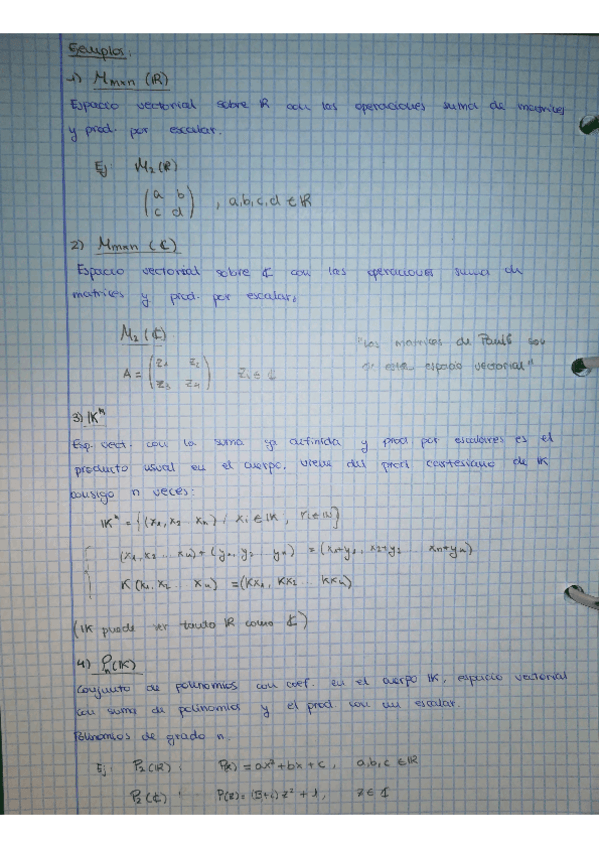 Ejemplos:
1) Mmxn (ℝ)
Espacio vectorial sobre ℝ con las operaciones suma de matrices
y prod. por escalar.
Ej: M2(ℝ)
(a b
c d) , a,b,c,d ∈ ℝ
2) Mmxn (ℂ)
Espacio vectorial sobre ℂ con las operaciones suma de
matrices y prod. por escalar.
M2(ℂ)
"Las matrices de Pauli son
de este espacio vectorial"
A = (z1 z2
z3 z4) zi ∈ ℂ
3) 𝕂ⁿ
Esp. vect. con la suma ya definida y prod por escalares es el
producto usual en el cuerpo. Viene del prod cartesiano de 𝕂
consigo n veces:
𝕂ⁿ = {(x1, x2 ... xn) / xi ∈ 𝕂, ∀i ∈ ℕ}
(x1, x2 ... xn) + (y1, y2 ... yn) = (x1+y1, x2+y2 ... xn+yn)
K(x1, x2 ... xn) = (Kx1, Kx2 ... Kxn)
(𝕂 puede ser tanto ℝ como ℂ)
4) Pn(𝕂)
Conjunto de polinomios con coef. en el cuerpo 𝕂, espacio vectorial
con suma de polinomios y el prod. con un escalar.
Polinomios de grado n.
Ej: P2(ℝ): P(x) = ax²+bx+c, a,b,c ∈ ℝ
P2(ℂ): P(z) = (3+i)z²+1, z ∈ ℂ